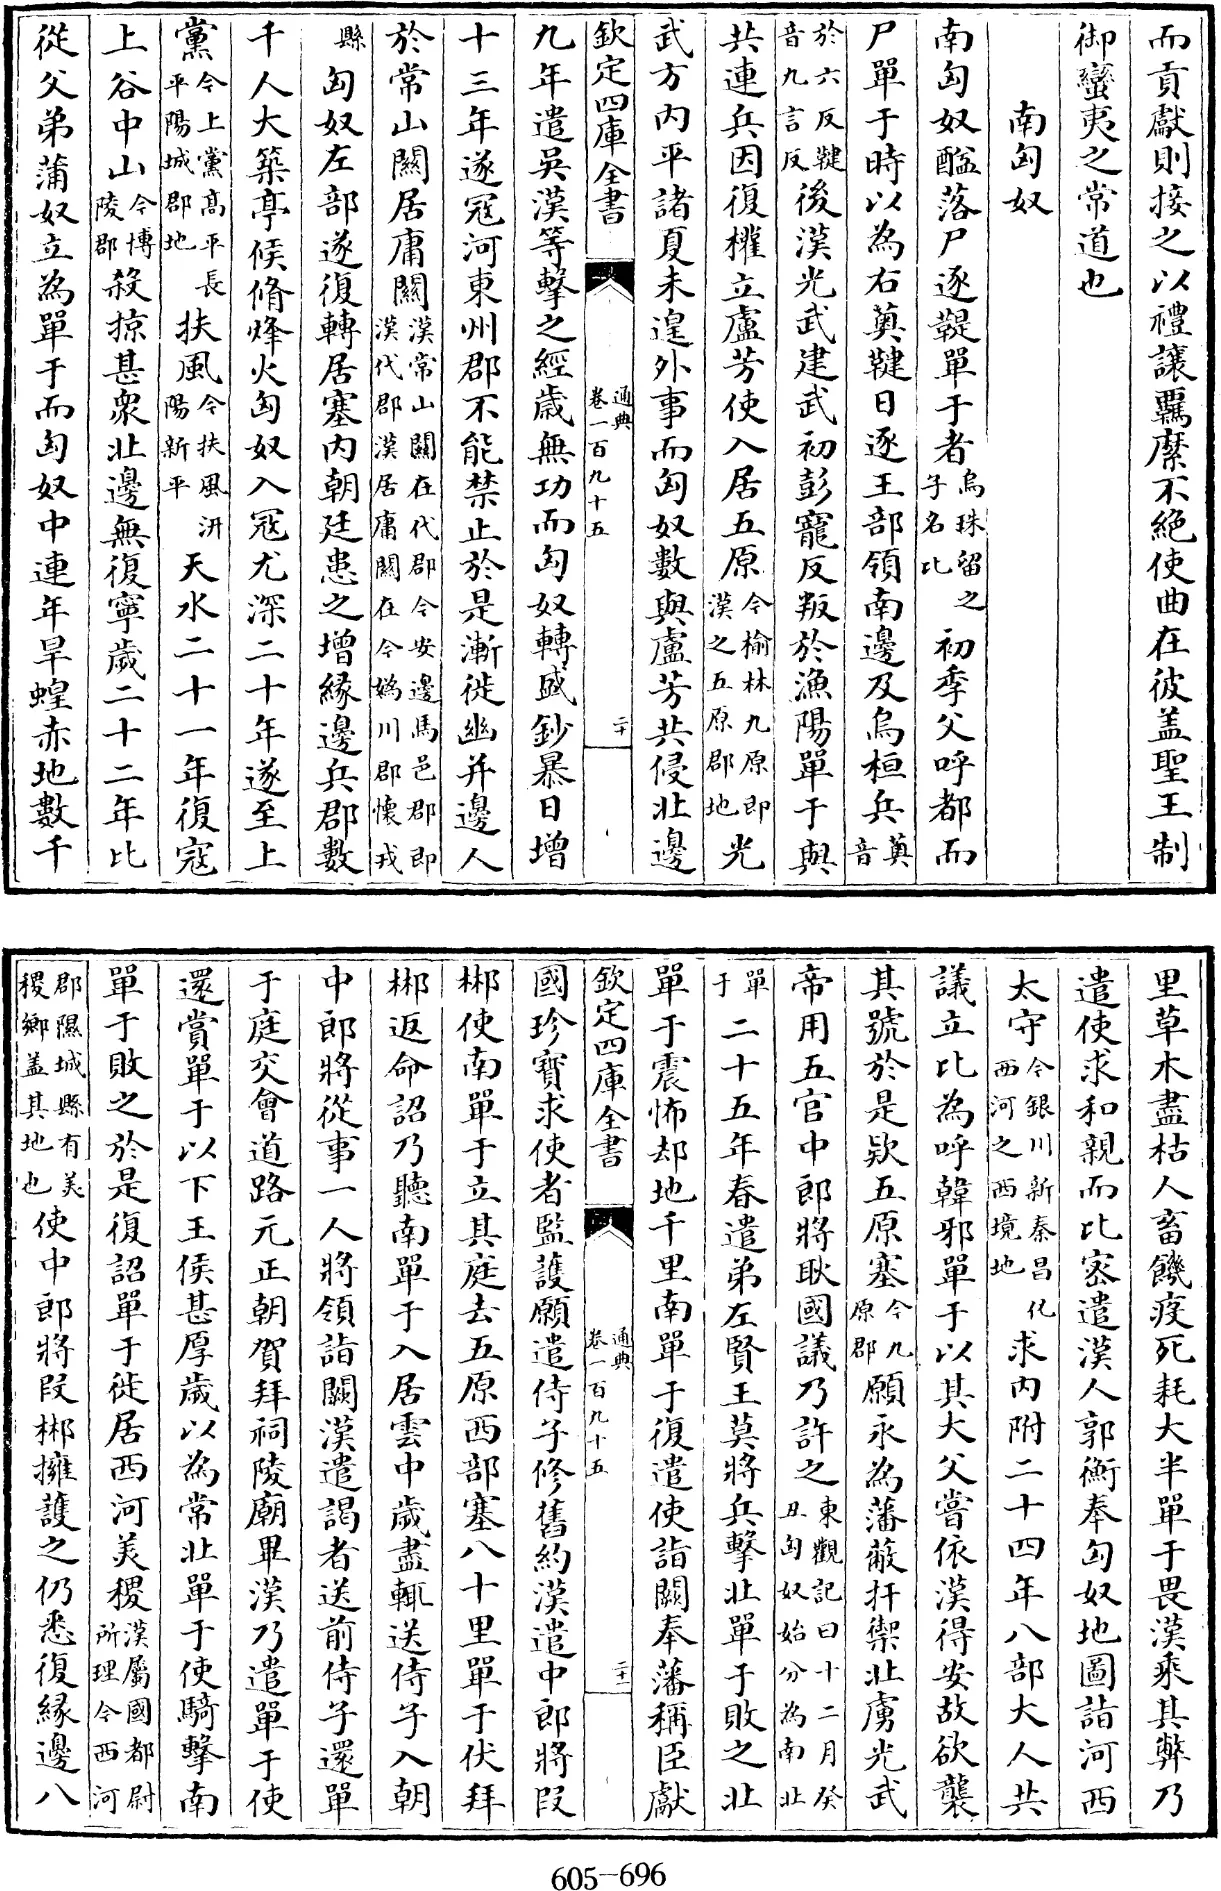 而貢獻則接之以禮讓羈縻不絕使曲在彼盖聖王制
御蠻夷之常道也
南匈奴
南匈奴醢落尸逐鞮單于者烏珠留之子名比初季父呼都而
尸單于時以為右薁鞬日逐王部領南邊及烏桓兵薁音
於六反鞬音九言反後漢光武建武初彭寵反叛於漁陽單于與
共連兵因復權立盧芳使入居五原今榆林九原即漢之五原郡地光
武方内平諸夏未遑外事而匈奴數與盧芳共侵北邊
欽定四庫全書
通典
卷一百九十五
二十
九年遣吳漢等擊之經歲無功而匈奴轉盛鈔暴日增
十三年遂寇河東州郡不能禁止於是漸徙幽并邊人
於常山關居庸關漢常山關在代郡今安邊馬邑郡即漢代郡漢居庸關在今媯川郡懷戎
縣匈奴左部遂復轉居塞内朝廷患之增緣邊兵郡數
千人大築亭候脩烽火匈奴入寇尤深二十年遂至上
黨今上黨高平長平陽城郡地扶風今扶風汧陽新平天水二十一年復寇
上谷中山今博陵郡殺掠甚衆北邊無復寧歲二十二年比
從父弟蒲奴立為單于而匈奴中連年旱蝗赤地數千
里草木盡枯人畜饑疫死耗大半單于畏漢乘其弊乃
遣使求和親而比密遣漢人郭衡奉匈奴地圖詣河西
太守今銀川新秦昌化西河之西境地求内附二十四年八部大人共
議立比為呼韓邪單于以其大父嘗依漢得安故欲襲
其號於是欵五原塞今九原郡願永為藩蔽扞禦北虜光武
帝用五官中郎將耿國議乃許之東觀記曰十二月癸丑匈奴始分為南北
單于二十五年春遣弟左賢王莫將兵擊北單于敗之北
單于震怖却地千里南單于復遣使詣闕奉藩稱臣獻
欽定四庫全書
通典
卷一百九十五
二十一
國珍寶求使者監護願遣侍子修舊約漢遣中郎將段
郴使南單于立其庭去五原西部塞八十里單于伏拜
郴返命詔乃聽南單于入居雲中歲盡輒送侍子入朝
中郎將從事一人將領詣闕漢遣謁者送前侍子還單
于庭交會道路元正朝賀拜祠陵廟畢漢乃遣單于使
還賞單于以下王侯甚厚歲以為常北單于使騎擊南
單于敗之於是復詔單于徙居西河美稷漢屬國都尉所理今西河
郡隰城縣有美稷鄉盖其地也使中郎將段郴擁護之仍悉復緣邊八
605-696